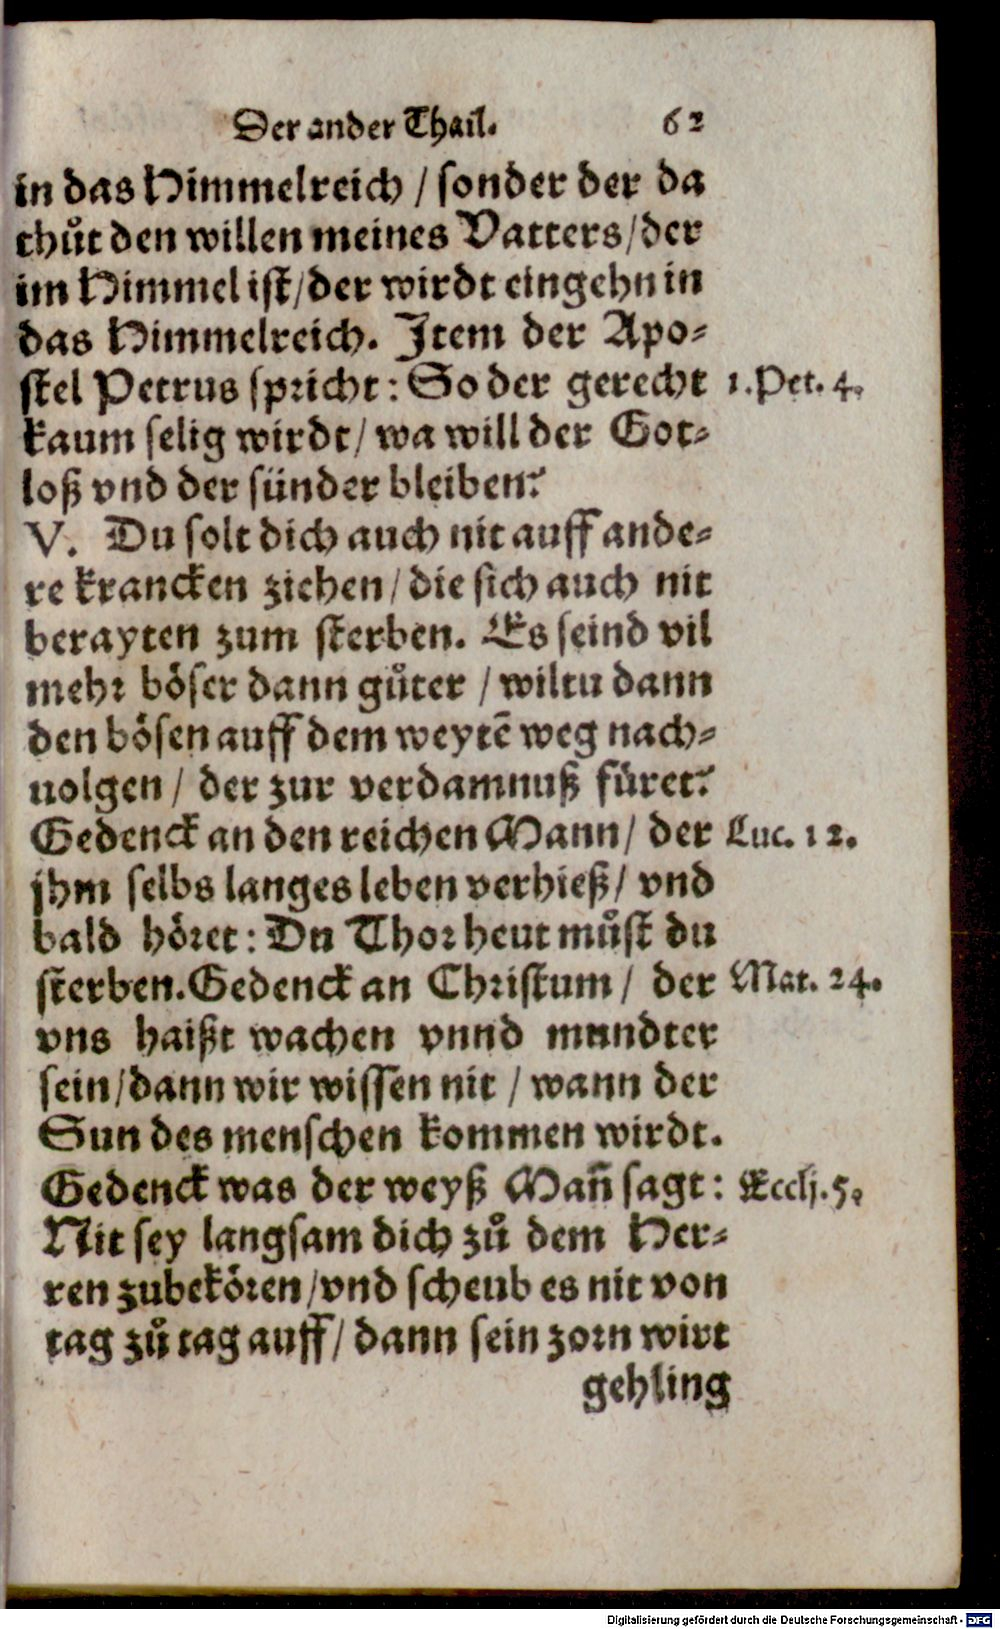 Der ander Thail. 62
in das Himmelreich / sonder der da
thůt den willen meines Vatters/der
im Himmel ist/der wirdt eingehn in
das Himmelreich. Item der Apo-
stel Petrus spricht: So der gerecht 1. Pet. 4.
kaum selig wirdt/ wa will der Got-
loß vnd der sünder bleiben?
V. Du solt dich auch nit auff ande-
re krancken ziehen/die sich auch nit
berayten zum sterben. Es seind vil
mehr böser dann gůter / wiltu dann
den bösen auff dem weytẽ weg nach-
uolgen / der zur verdamnuß füret?
Gedenck an den reichen Mann/ der Luc. 12.
jhm selbs langes leben verhieß/ vnd
bald höret: Du Thor heut můst du
sterben. Gedenck an Christum / der Mat. 24.
vns haißt wachen vnnd mundter
sein/dann wir wissen nit / wann der
Sun des menschen kommen wirdt.
Gedenck was der weyß Mañ sagt: Eccli. 5.
Nit sey langsam dich zů dem Her-
ren zubekören/vnd scheub es nit von
tag zů tag auff/ dann sein zorn wirt
gehling
Digitalisierung gefördert durch die Deutsche Forschungsgemeinschaft - DFG